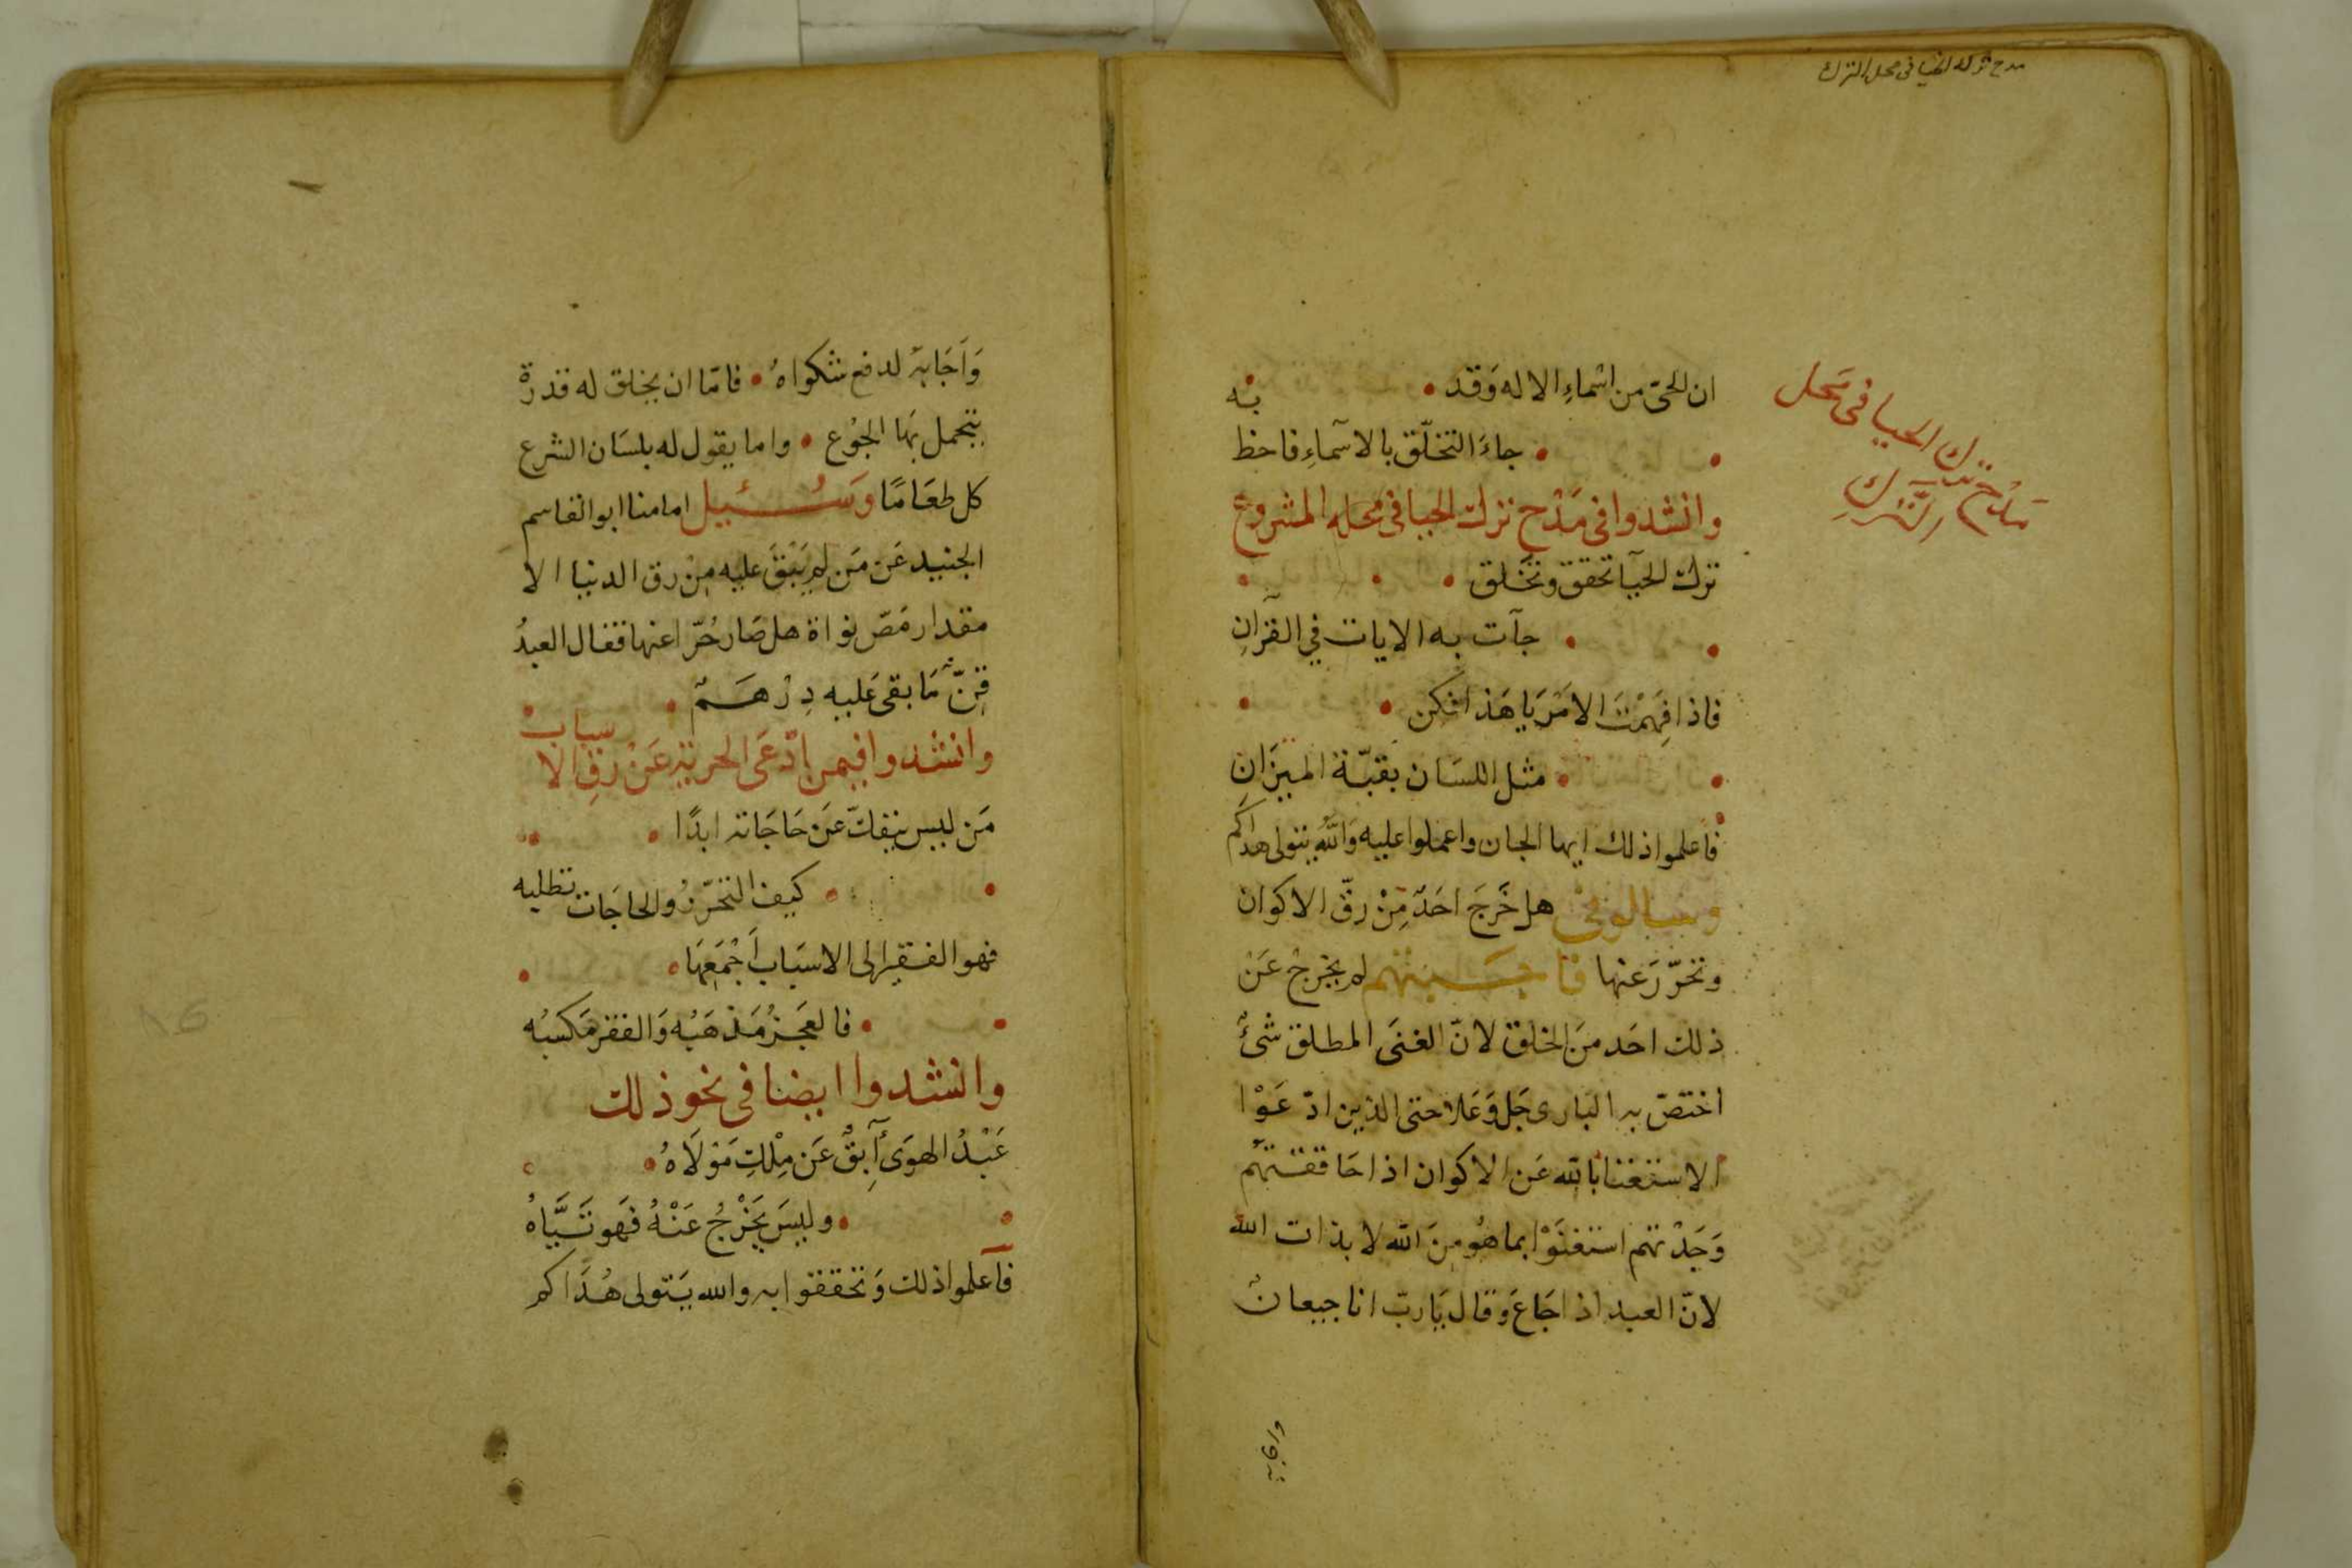 مدح ترك الحيا في محل الترك
مدح ترك الحيا في محل
الترك
ان الحيّ من اسْماءِ الاله وَقد
جاءَ التخلّق بالاسماءِ فاحظ به
وانشدوا في مَدْح ترك الحيا في محله المشروع
ترك الحيآ تحقق وتخَلق
جآت به الايات في القرآنِ
فاذا فَهِمْتَ الامَر يَا هَذا فكن
مثل اللسَان بقبّة الميزَانِ
فاعلموا ذلك ايها الجان واعملوا عليه وَاللّهُ يتولى هداكم
وسالوني هل خَرجَ احَدٌ مِنْ رقّ الاكوان
وتحرّرَ عنها فاجبتهم لم يخرجْ عَن
ذلك احَد منَ الخلق لانّ الغنَى المطلق شئٌ
اختصّ به البارى جَل وَعَلا حتى الذين ادّعَوْا
الاستغنا بالله عَن الاكوان اذا حَاققتهُم
وَجَدْتهم استغنَوْا بما هُو مِنَ الله لا بذات الله
لانّ العبد اذا جَاعَ وَقال يَارب انا جيعانٌ
واجابه
وَاَجَابهُ لدفع شكواهُ فامّا ان يخلق له قدرة
يتحمل بهَا الجُوع واما يقول له بلسَان الشرع
كل طعَامًا وَسُئيل امامنا ابو القاسم
الجنيد عَن مَن لم يَبْقَ عليه مِنْ رق الدنيا الا
مقدار مَصّ نواة هل صَار حُرّا عنها فقال العبدُ
قِنٌّ مَا بقى عَليه دِرْهَمٌ
وانشدوا فيمن ادّعَى الحرية عَنْ رقِ الاسباب
مَن ليس ينفكّ عَن حَاجَاته ابدًا
كيف التحرّرُ والحاجَات تطلبه
فهو الفقير الى الاسبَاب اَجْمَعِهَا
فالعَجزُ مَذهَبُه وَالفقر مَكسبُه
وانشدوا ايضا في نحو ذلك
عَبْدُ الهوَى آبِقٌ عَن مِلْكِ مَوْلَاهُ
وليسَ يَخْرُجُ عَنْهُ فَهو تَيَّاهُ
فاعلموا ذلك وَتحققوا به والله يَتولى هُدَاكم